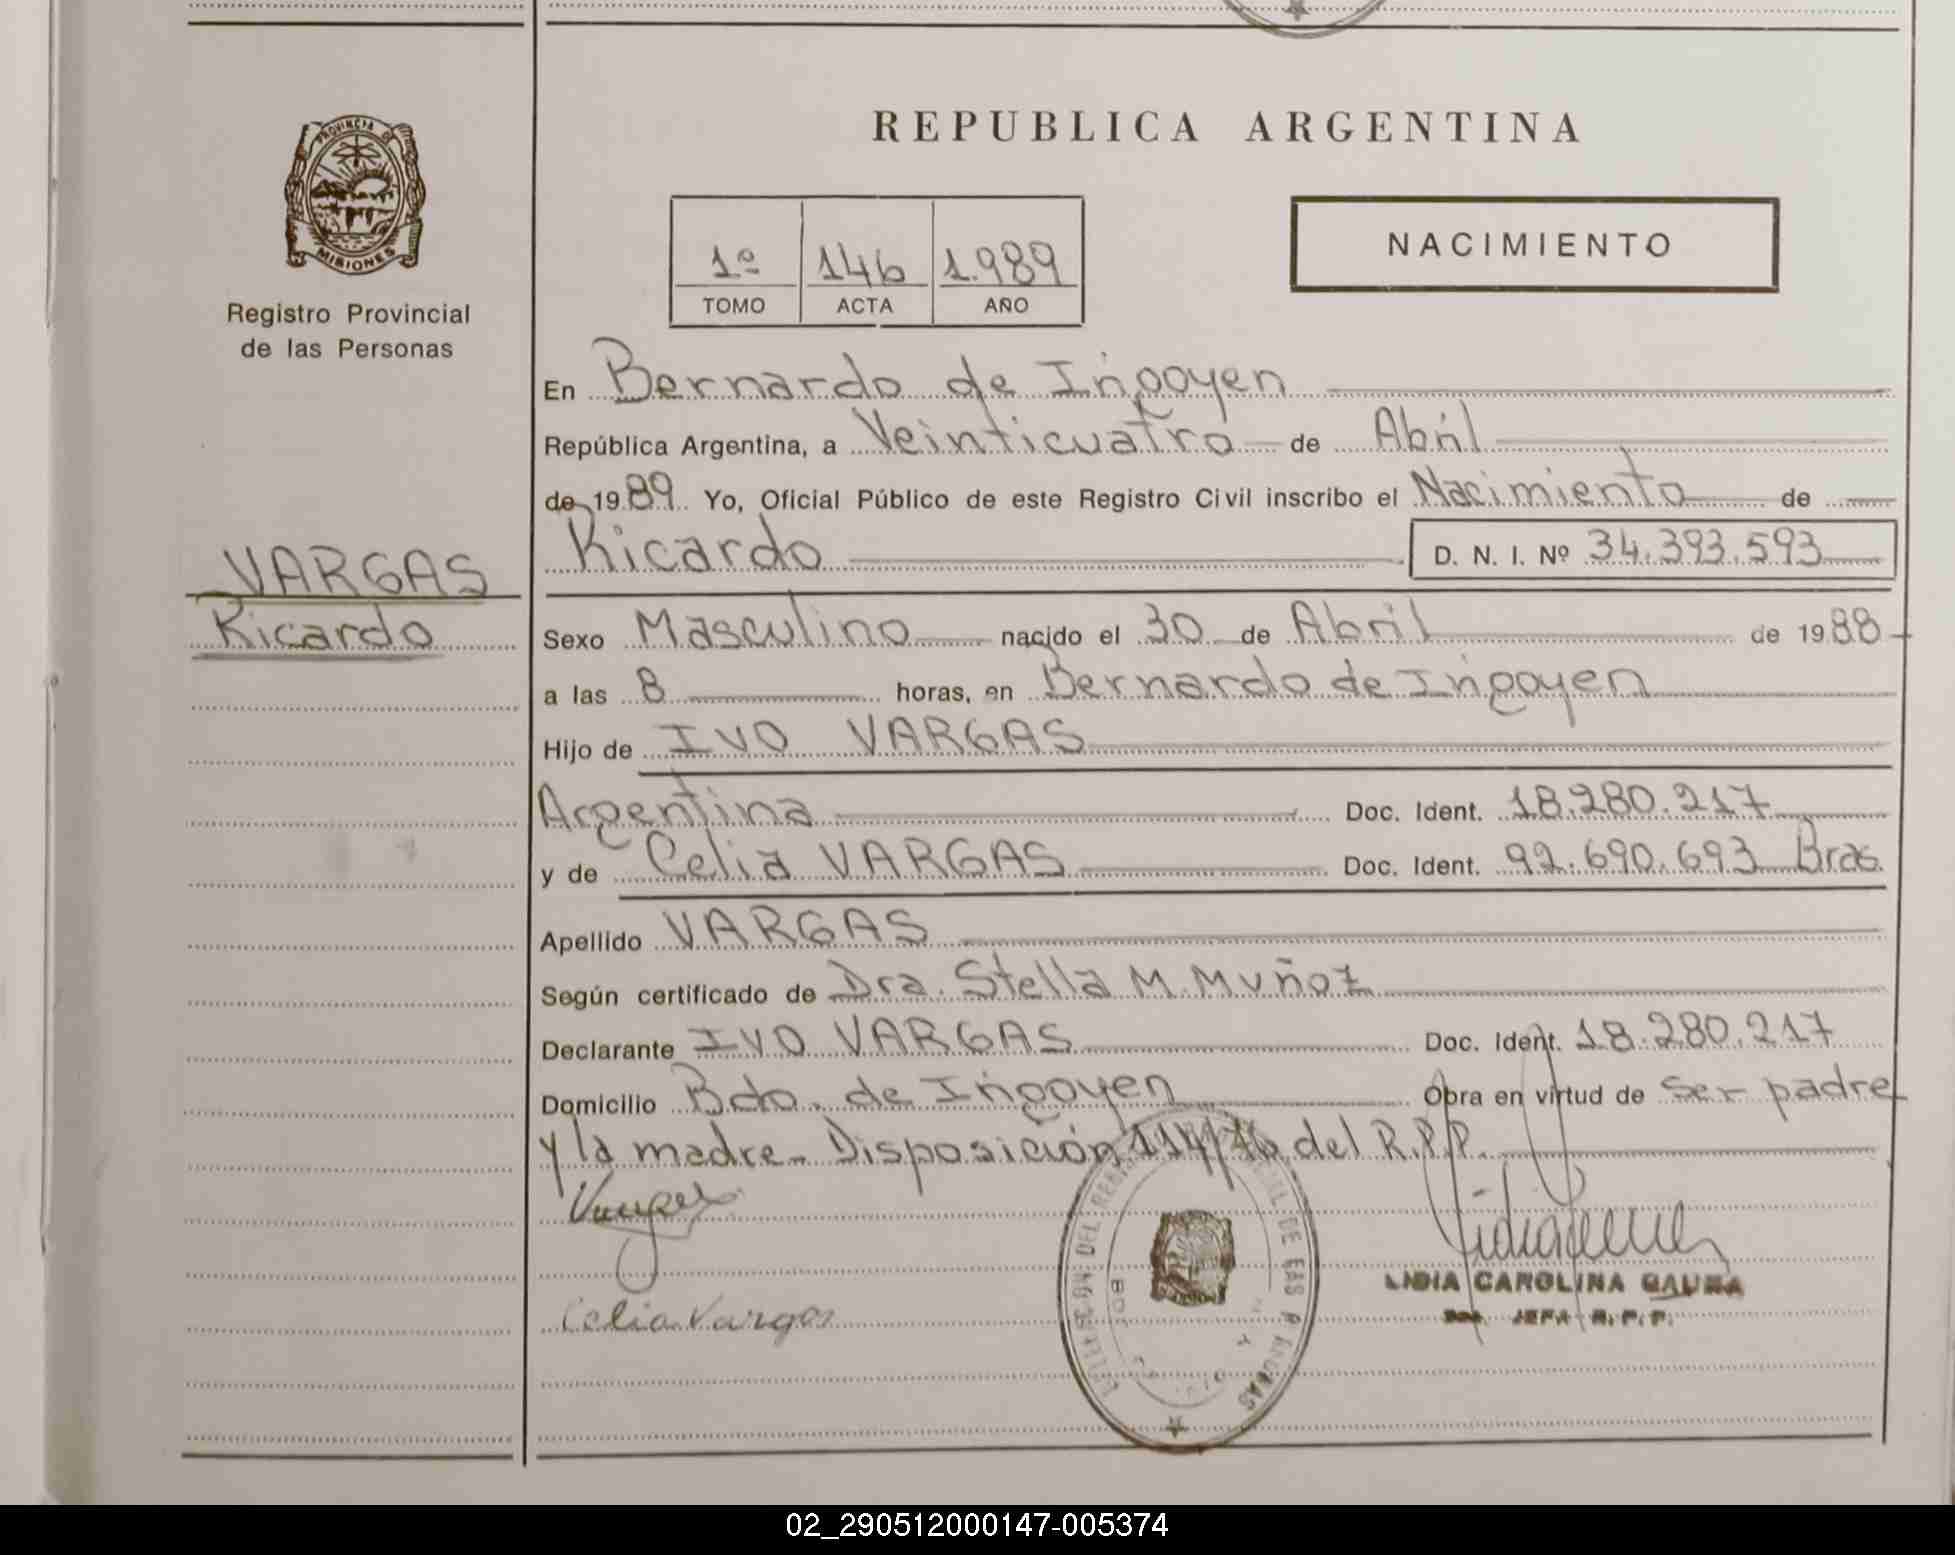 PROVINCIA DE
MISIONES
Registro Provincial
de las Personas
VARGAS
Ricardo
REPUBLICA ARGENTINA
1º 146 1.989
TOMO ACTA AÑO
NACIMIENTO
En Bernardo de Irigoyen
República Argentina, a Veinticuatro de Abril
de 1989. Yo, Oficial Público de este Registro Civil inscribo el Nacimiento de
Ricardo D. N. I. Nº 34.393.593
Sexo Masculino nacido el 30 de Abril de 1988
a las 8 horas, en Bernardo de Irigoyen
Hijo de IVO VARGAS
Argentina Doc. Ident. 18.280.217
y de Celia VARGAS Doc. Ident. 92.690.693 Bras.
Apellido VARGAS
Según certificado de Dra. Stella M. Muñoz
Declarante IVO VARGAS Doc. Ident. 18.280.217
Domicilio Bdo. de Irigoyen Obra en virtud de ser padre
y la madre. Disposición 114/76 del R.P.P.
Celia Vargas
LIDIA CAROLINA GAUNA
JEFA R.P.P.
02_290512000147-005374